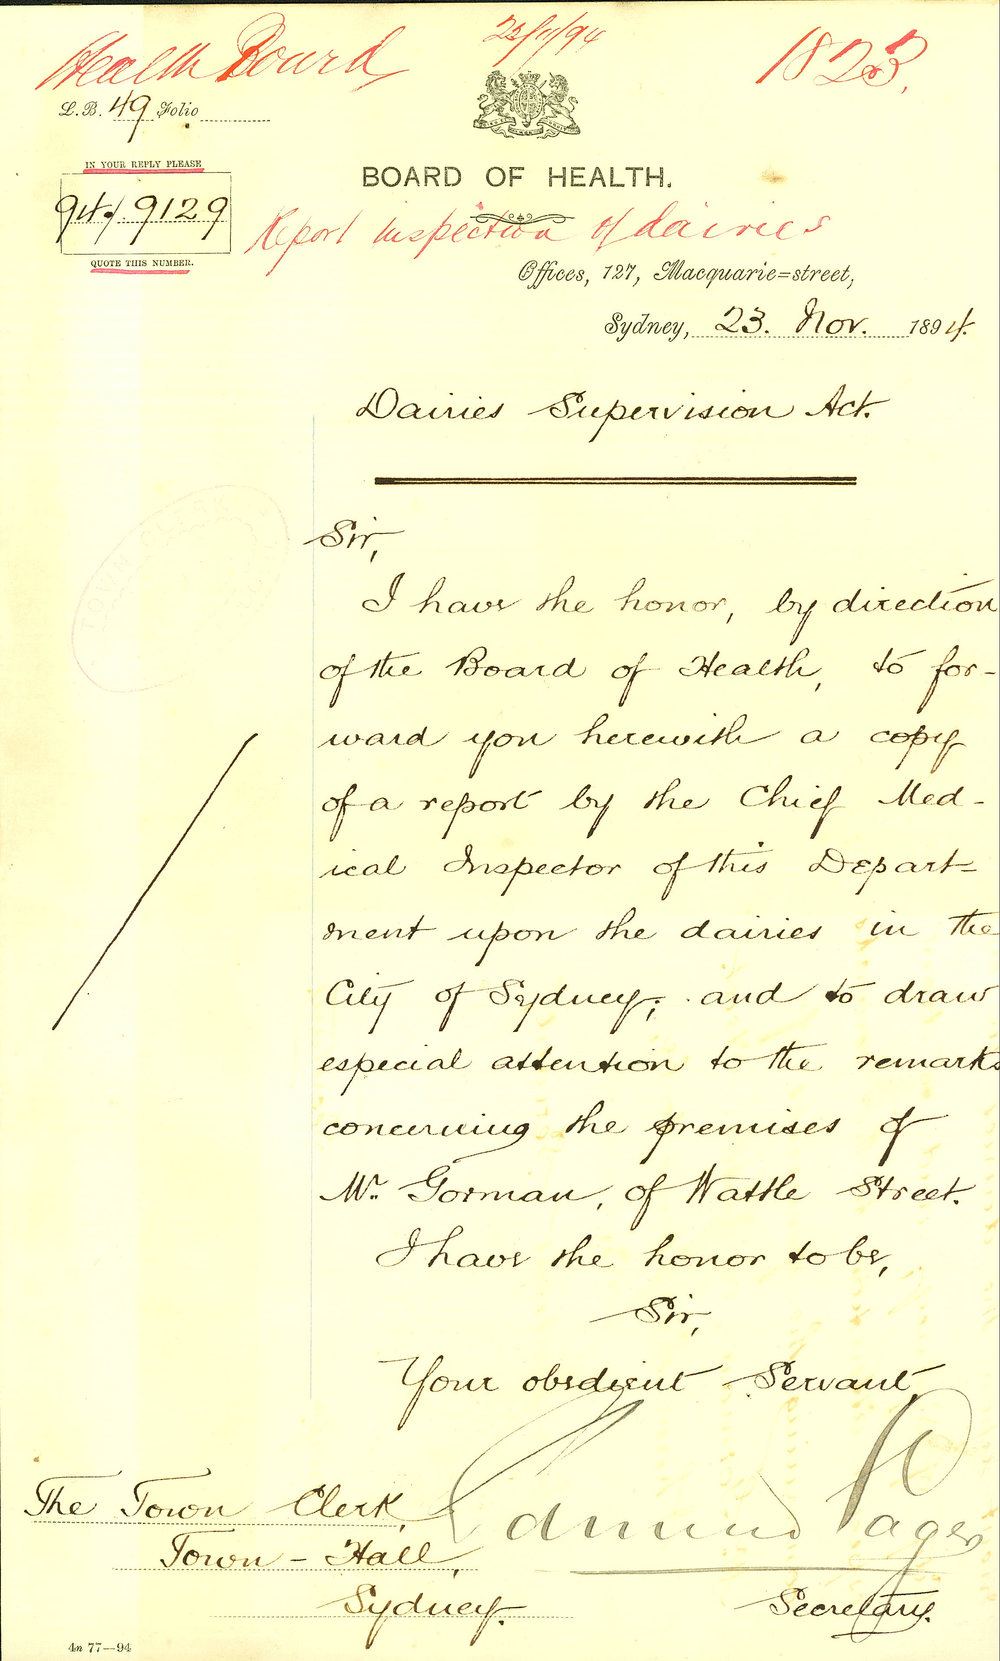 Health Board
23/11/94
1823.
L.B. 49 Folio
IN YOUR REPLY PLEASE
94/9129
QUOTE THIS NUMBER.
BOARD OF HEALTH.
Report inspection of dairies
Offices, 127, Macquarie=street,
Sydney, 23. Nov. 1894.
Dairies Supervision Act.
Sir,
I have the honor, by direction
of the Board of Health, to for-
ward you herewith a copy
of a report by the Chief Med-
ical Inspector of this Depart-
ment upon the dairies in the
City of Sydney; and to draw
especial attention to the remarks
concerning the premises of
Mr. Gorman, of Wattle Street.
I have the honor to be,
Sir,
Your obedient Servant,
Edmund Sager
Secretary.
The Town Clerk,
Town-Hall,
Sydney.
4n 77—94